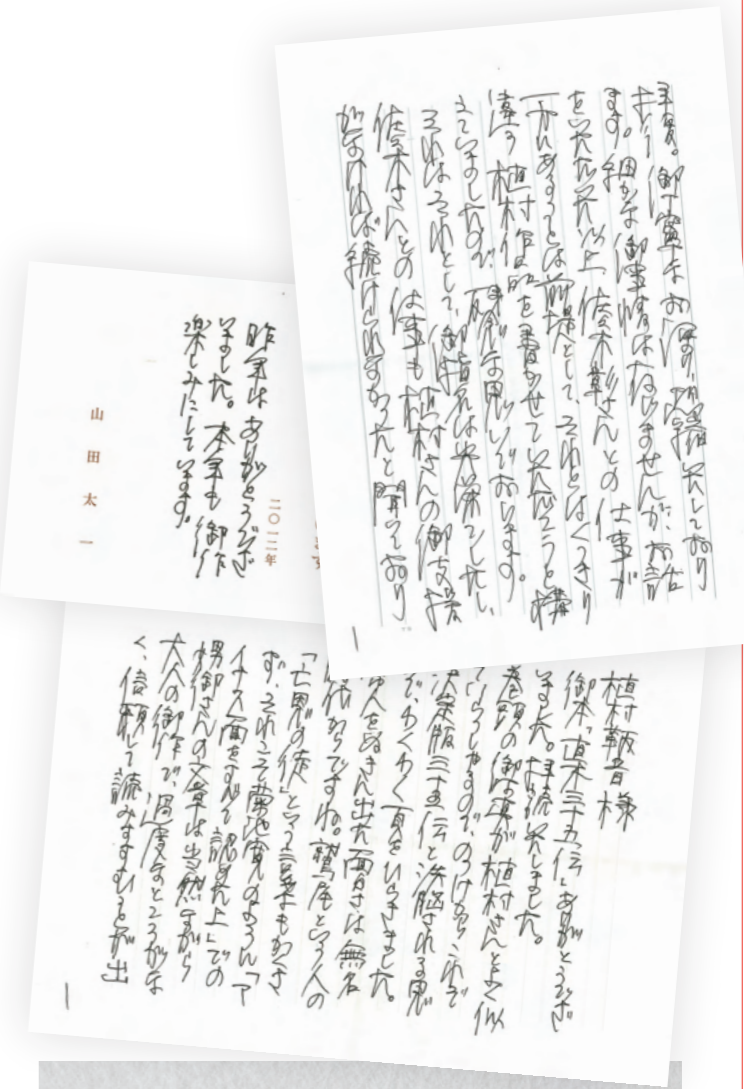 御丁寧なお便り恐縮いたしており
ます。細かな御事情は存じませんが、お話
をいただいた以上、佐々木彰さんとの仕事が
一方にあることは前提として、それとはくっきり
違う植村作品を書かせていただこうと構
えていましたので、残念な思いでおります。
それはそれとして、御指名は光栄でしたし、
佐々木さんとの仕事も植村さんの御支持
がなければ続けられなかったと聞いており
1
ます
二〇一二年
昨年はありがとうござ
いました。本年も御作
楽しみにしています。
山田太一
植村鞆音様
御本『直木三十五伝』ありがとうござ
いました。拝読いたしました。
巻頭の御写真が植村さんとよく似
ていらっしゃるので、のっけからこれぞ
決定版三十五伝と洗脳される思い
で、わくわく頁をひらきました。
人をぬきん出た面白さは無名
時代からですね。鷲尾という人の
「亡恩の徒」という言葉もかくさ
ず、それこそ菊池寛のように「マ
イナス面をすべて認めた上」での
甥御さんの文章は当然ながら
大人の御作で、過度なところがな
く、信頼して読みすすむことが出
1